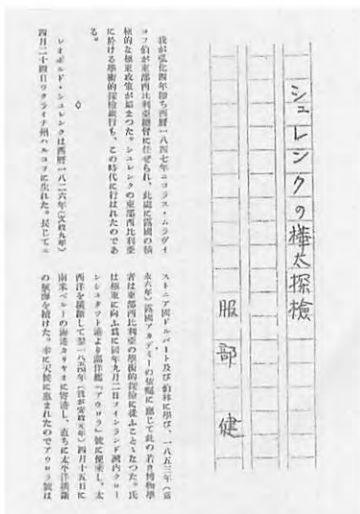 シュレンクの樺太探檢
服部健
我が弘化四年卽ち西曆一八四七年ニコラス・ムラヴイ
ヨフ伯が東部西比利亞總督に任ぜられ、此處に露國の積
極的な極東政策が始まつた。シュレンクの東部西比利亞
に於ける學術的探檢旅行も、この時代に行はれたのであ
る。
◇
レオポルド・シュレンクは西曆一八二六年(文政九年)
四月二十四日ウクライナ州ハルコフに生れた。長じてエ
ストニア國ドルパート及び伯林に學び、一八五三年(嘉
永六年)露國アカデミーの依囑に應じて此の若き博物學
者は東部西比利亞の學術的探檢に從ふことゝなつた。氏
は極東に向ふ爲に同年九月二日フインランド灣內クロー
ンシユタフト港より 『アウロラ』號に便乘し、太
西洋を橫斷して翌一八五四年(我が安政元年)四月十五日に
南米ペルーの海港カリヤオに寄港し、直ちに太平洋橫斷
の航海を續けた。幸に天候に惠まれたのでアウロラ號は